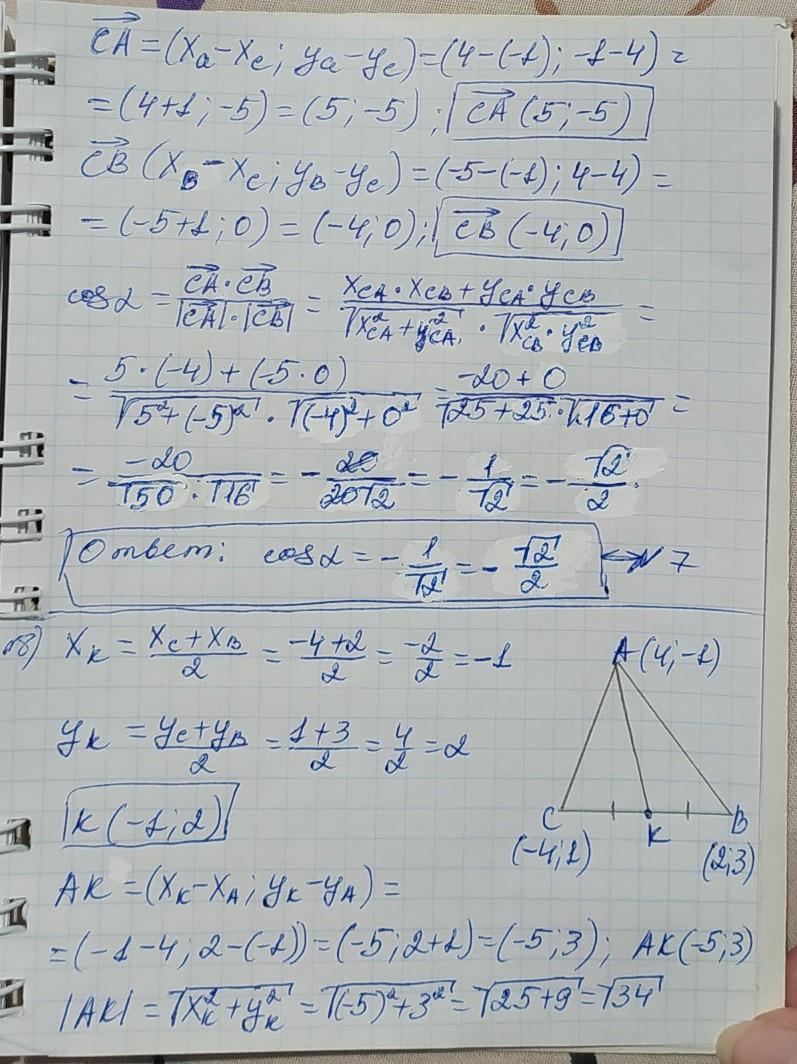 CA = (xa - xc; ya - yc) = (4-(-1); -1-4) =
= (4+1; -5) = (5; -5); CA (5; -5)
CB (xB - xc; yB - yc) = (-5-(-1); 4-4) =
= (-5+1; 0) = (-4; 0); CB (-4; 0)
cos α = CA · CB / |CA| · |CB| = xCA · xCB + yCA · yCB / √x²CA + y²CA · √x²CB · y²CB =
= 5 · (-4) + (-5 · 0) / √5² + (-5)² · √(-4)² + 0² = -20 + 0 / √25 + 25 · √16 + 0 =
= -20 / √50 · √16 = - 20 / 20√2 = - 1 / √2 = - √2 / 2.
Ответ: cos α = - 1 / √2 = - √2 / 2 ↔ N 7
8) xK = xC + xB / 2 = -4 + 2 / 2 = -2 / 2 = -1
A (4; -1)
yK = yC + yB / 2 = 1 + 3 / 2 = 4 / 2 = 2
K (-1; 2)
C K B
(-4; 1) (2; 3)
AK = (xK - xA; yK - yA) =
= (-1-4; 2-(-1)) = (-5; 2+1) = (-5; 3); AK (-5; 3)
|AK| = √x²K + y²K = √(-5)² + 3² = √25 + 9 = √34